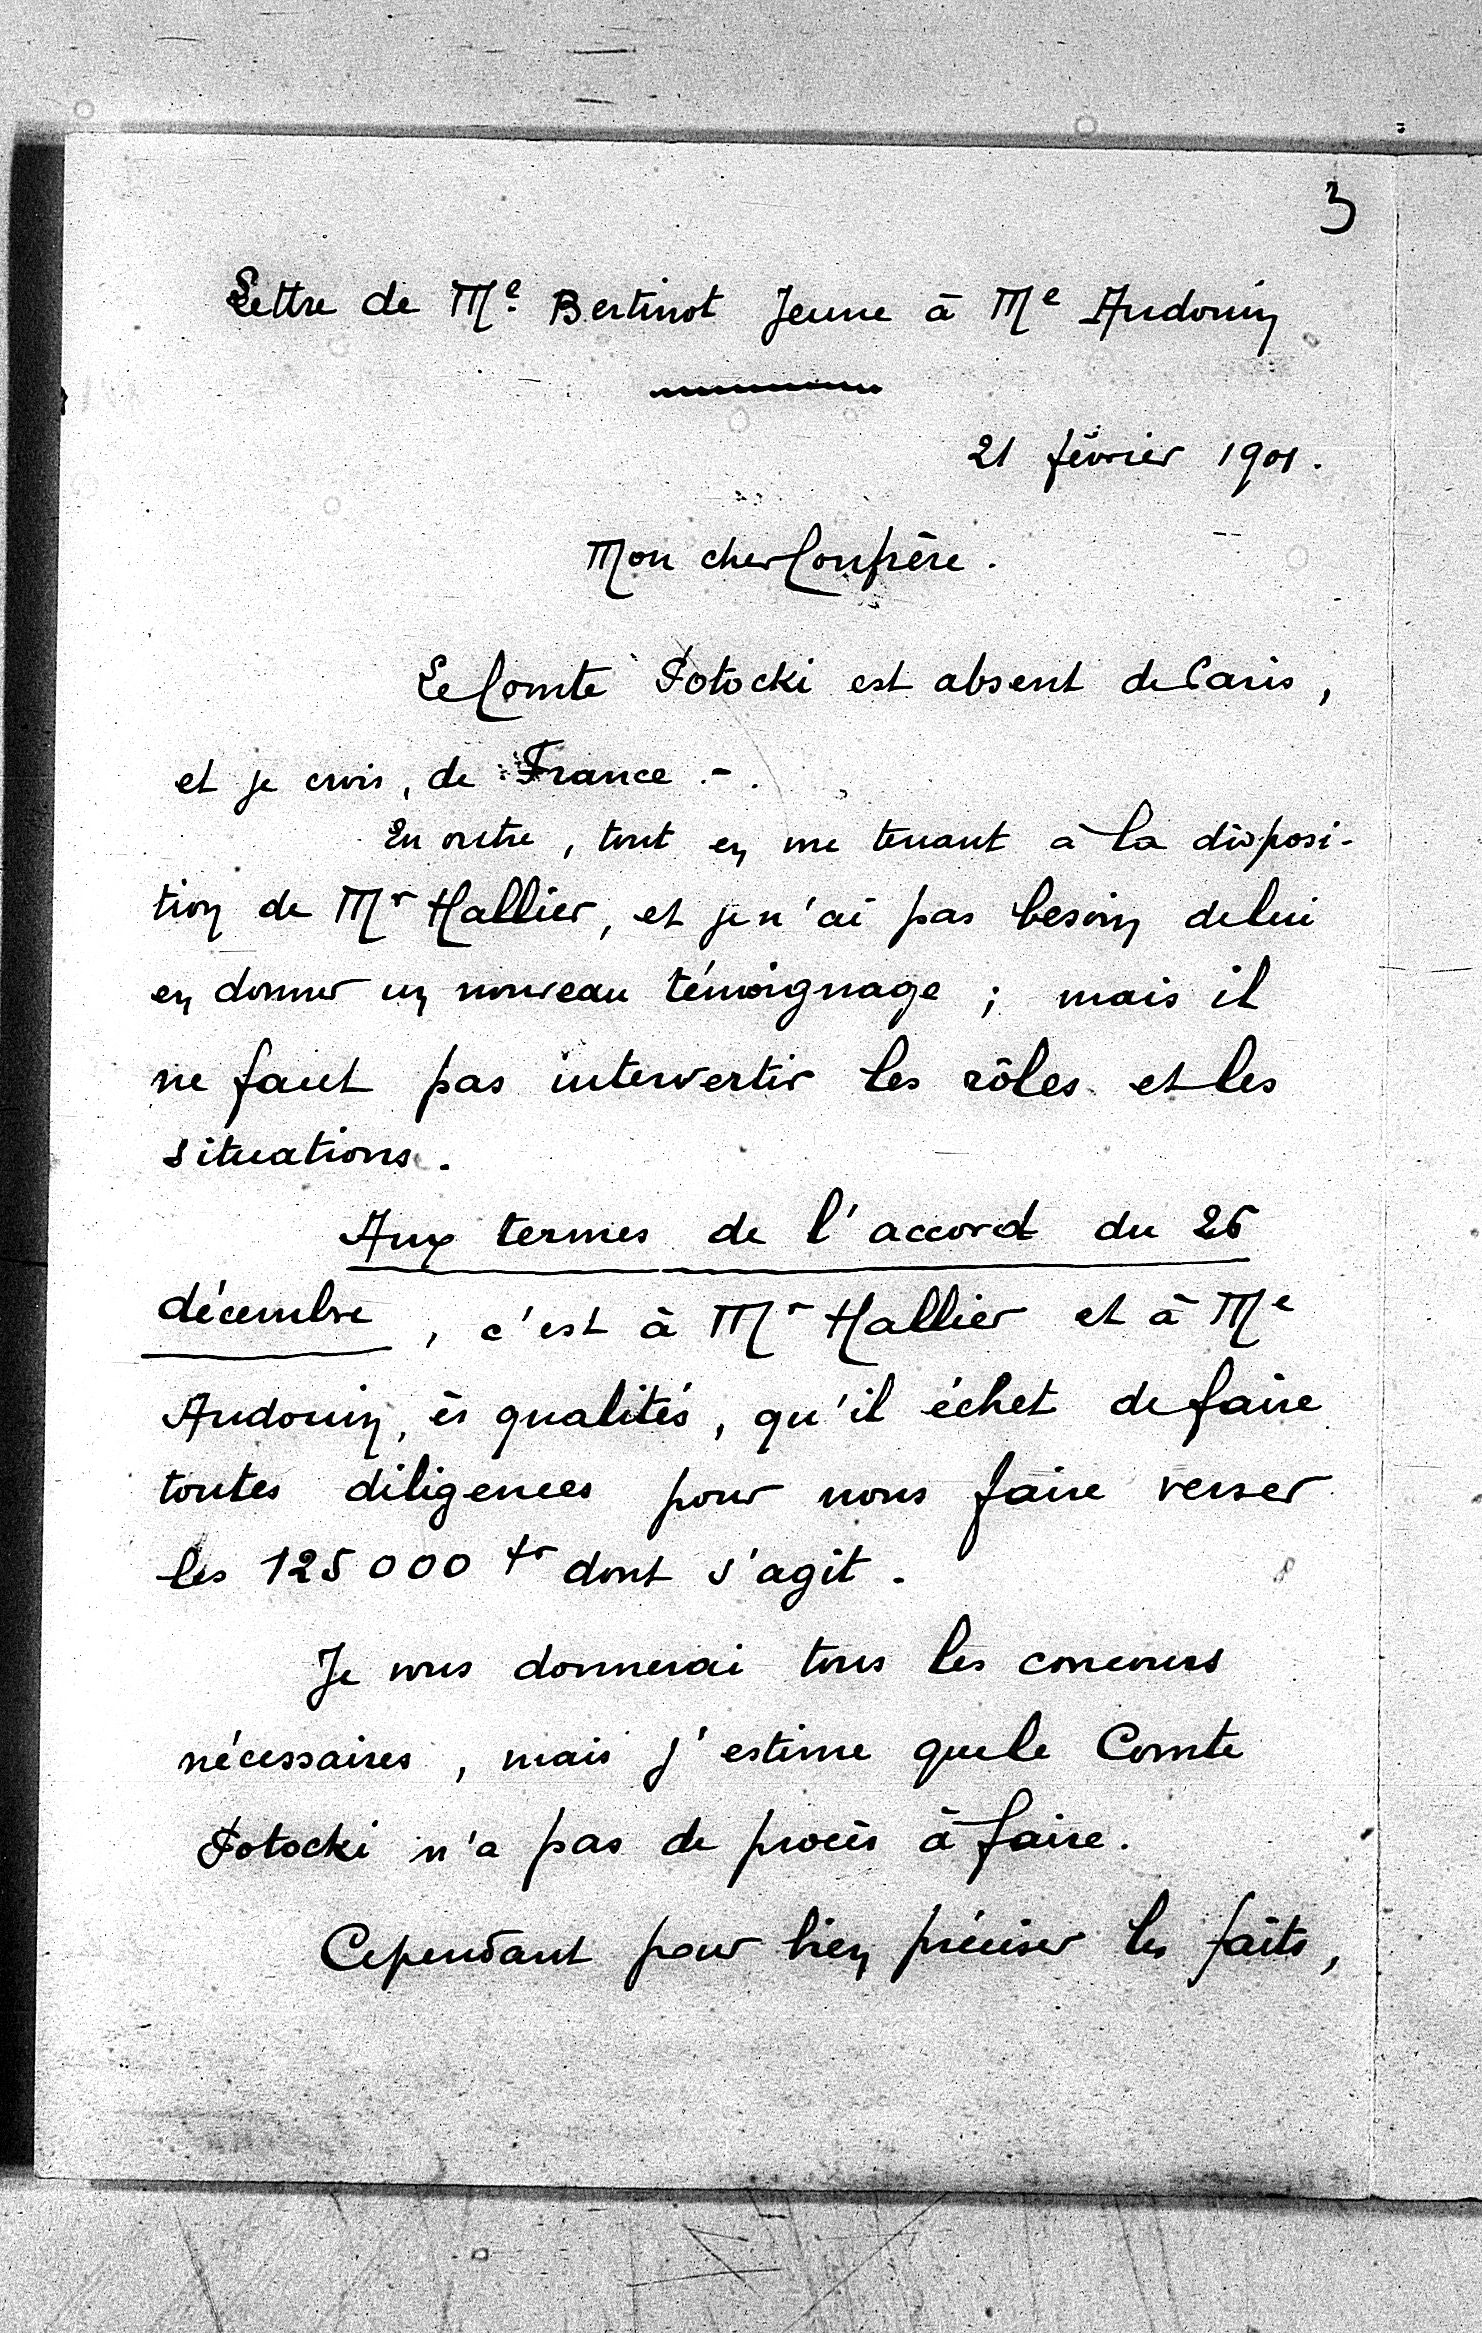 3
Lettre de Me. Bertinot Jeune à Me Audouin
21 février 1901.
Mon cher Confrère.
Le Comte Potocki est absent de Paris,
et je crois, de France -.
En outre, tout en me tenant à la disposi-
tion de Mr Hallier, et je n'ai pas besoin de lui
en donner un nouveau témoignage ; mais il
ne faut pas intervertir les rôles et les
situations.
Aux termes de l'accord du 26
décembre, c'est à Mr Hallier et à Me
Audouin, ès qualités, qu'il échet de faire
toutes diligences pour nous faire verser
les 125000 fr dont s'agit.
Je vous donnerai tous les concours
nécessaires, mais j'estime que le Comte
Potocki n'a pas de procès à faire.
Cependant pour bien préciser les faits,